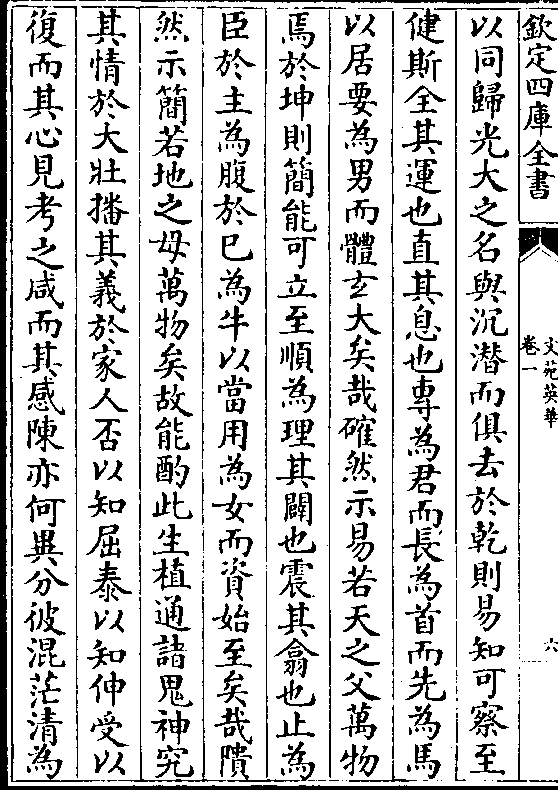 欽定四庫全書
文苑英華
卷一
六
以同歸光大之名與沉潜而俱去於乾則易知可察至
健斯全其運也直其息也專為君而長為首而先為馬
以居要為男而體𤣥大矣哉確然示易若天之父萬物
焉於坤則簡能可立至順為理其闢也震其翕也止為
臣於主為腹於巳為牛以當用為女而資始至矣哉隤
然示簡若地之母萬物矣故能酌此生植通諸鬼神究
其情於大壯播其義於家人否以知屈泰以知伸受以
復而其心見考之咸而其感陳亦何異分彼混茫清為